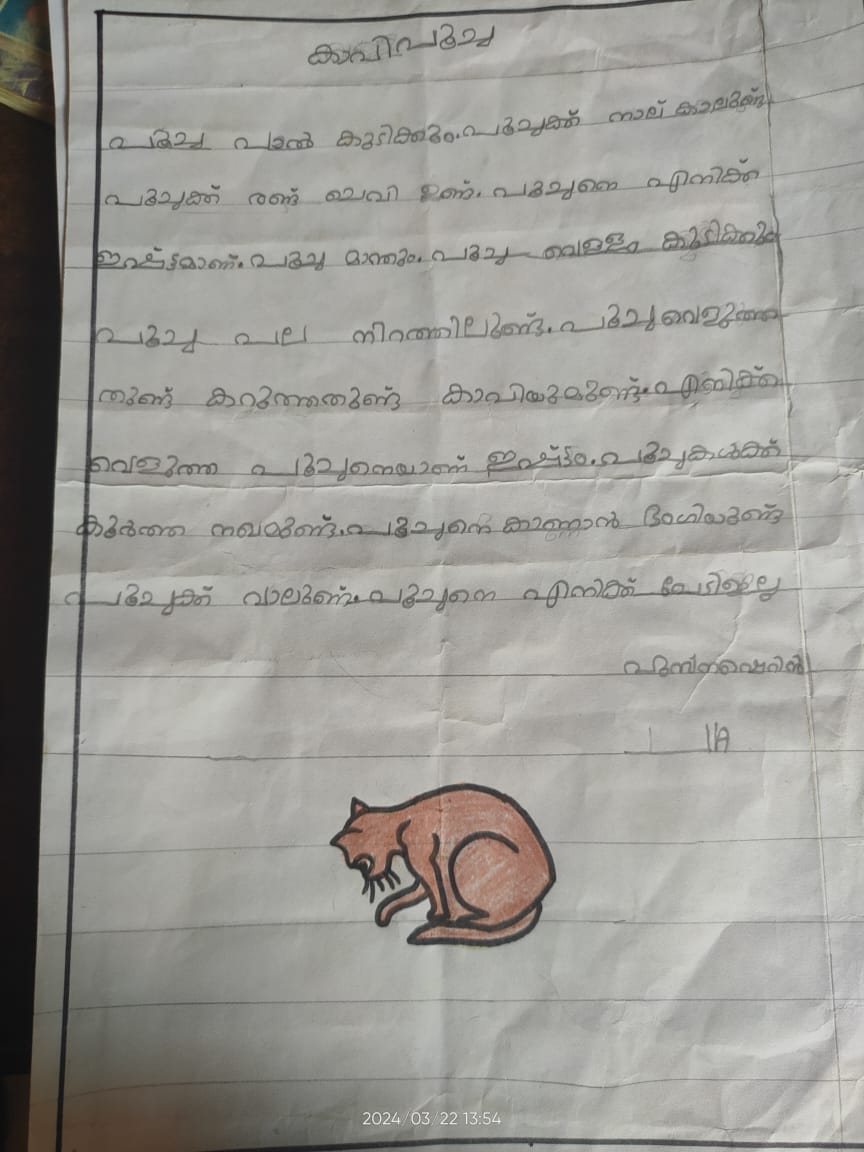 കാവിപൂച്ച
പൂച്ച പാൽ കുടിക്കും. പൂച്ചക്ക് നാല് കാലുണ്ട്
പൂച്ചക്ക് രണ്ട് ചെവി ഉണ്ട്. പൂച്ചനെ എനിക്ക്
ഇഷ്ട്ടമാണ്. പൂച്ച മാന്തും. പൂച്ച വെള്ളം കുടിക്കും
പൂച്ച പല നിറത്തിലുണ്ട്. പൂച്ച വെളുത്ത
തുണ്ട് കറുത്തതുണ്ട് കാവിയുമുണ്ട്. എനിക്ക്
വെളുത്ത പൂച്ചനെയാണ് ഇഷ്ട്ടം. പൂച്ചകൾക്ക്
കൂർത്ത നഖമുണ്ട്. പൂച്ചനെ കാണാൻ ഭംഗിയുണ്ട്
പൂച്ചക്ക് വാലുണ്ട്. പൂച്ചനെ എനിക്ക് പേടിഇല്ല
1A
2024/03/22 13:54